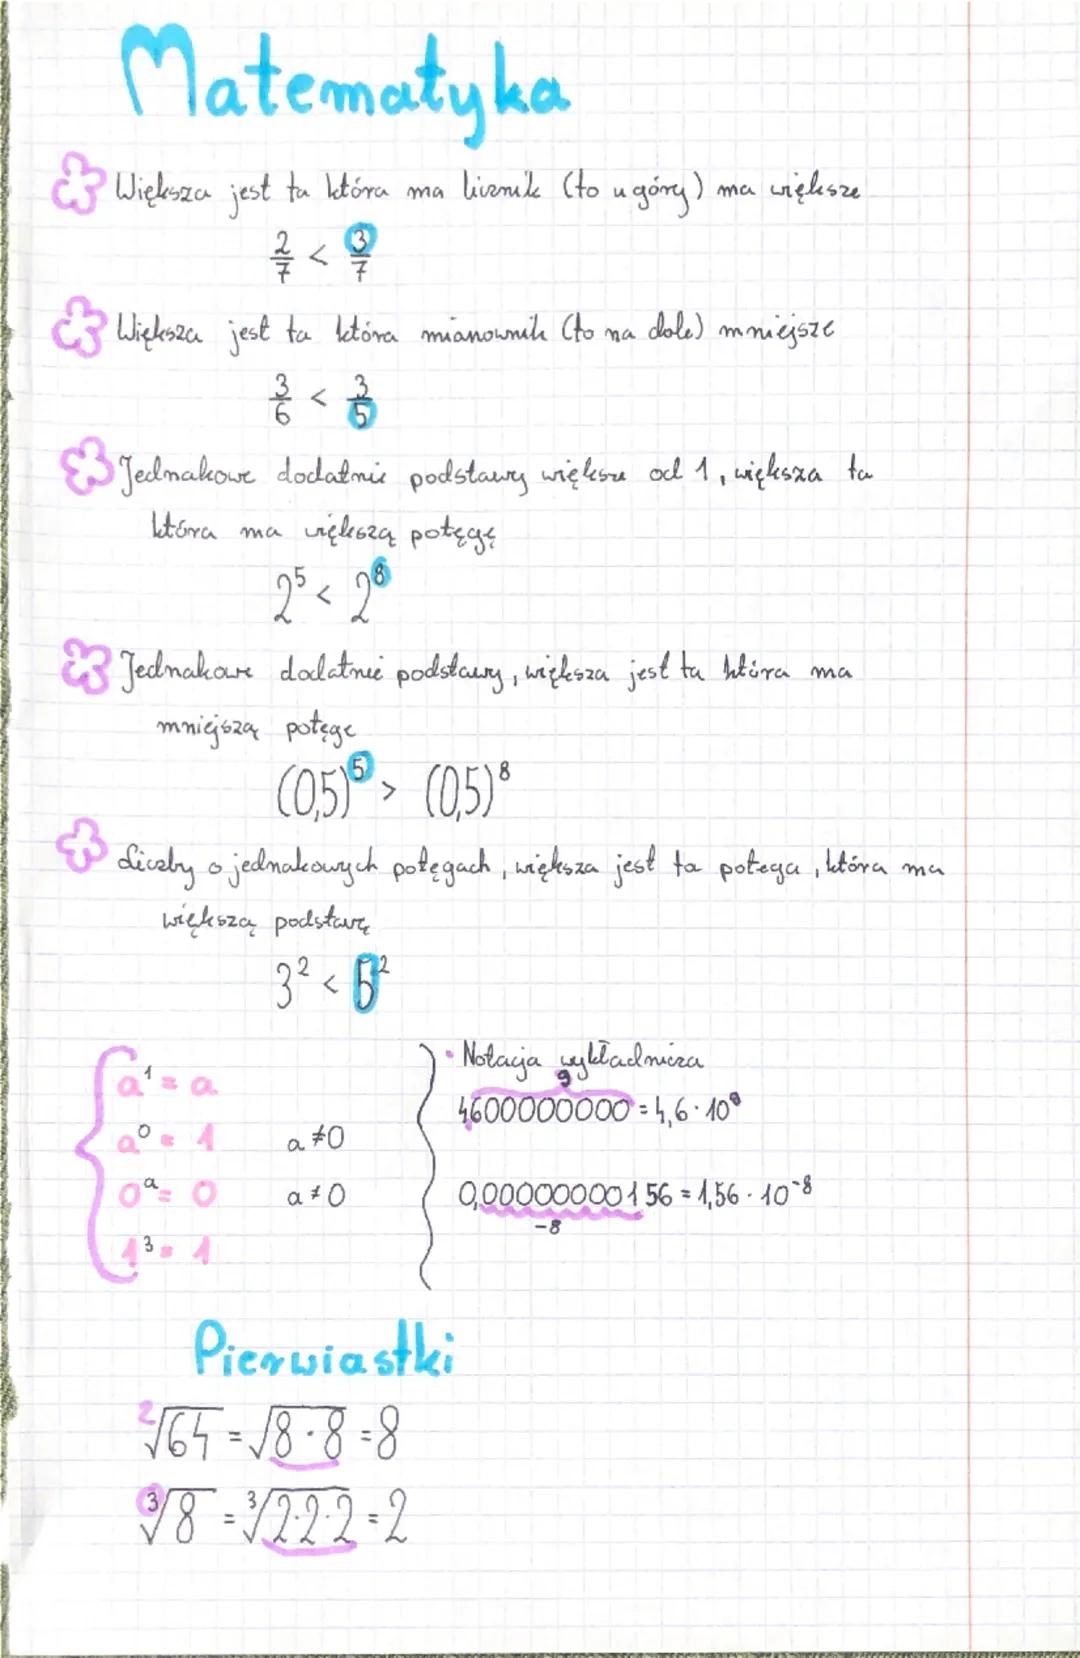 Matematyka
Większa jest ta która ma licznik (to u góry) ma większe
2/7 < 3/7
Większa jest ta która mianownik (to na dole) mniejsze
3/6 < 3/5
Jednakowe dodatnie podstawy większe od 1, większa ta
która ma większą potęgę
2⁵ < 2⁸
Jednakowe dodatnie podstawy, większa jest ta która ma
mniejszą potęgę
(0,5)⁵ > (0,5)⁸
Liczby o jednakowych potęgach, większa jest ta potega, która ma
większą podstawę
3² < 5²
a¹ = a
a⁰ = 1 a ≠ 0
0ᵃ = 0 a ≠ 0
1³ = 1
• Notacja wykładnicza
9
4600000000 = 4,6 · 10⁹
0,00000000156 = 1,56 · 10⁻⁸
-8
Pierwiastki
²√64 = √8·8 = 8
³√8 = ³√2·2·2 = 2